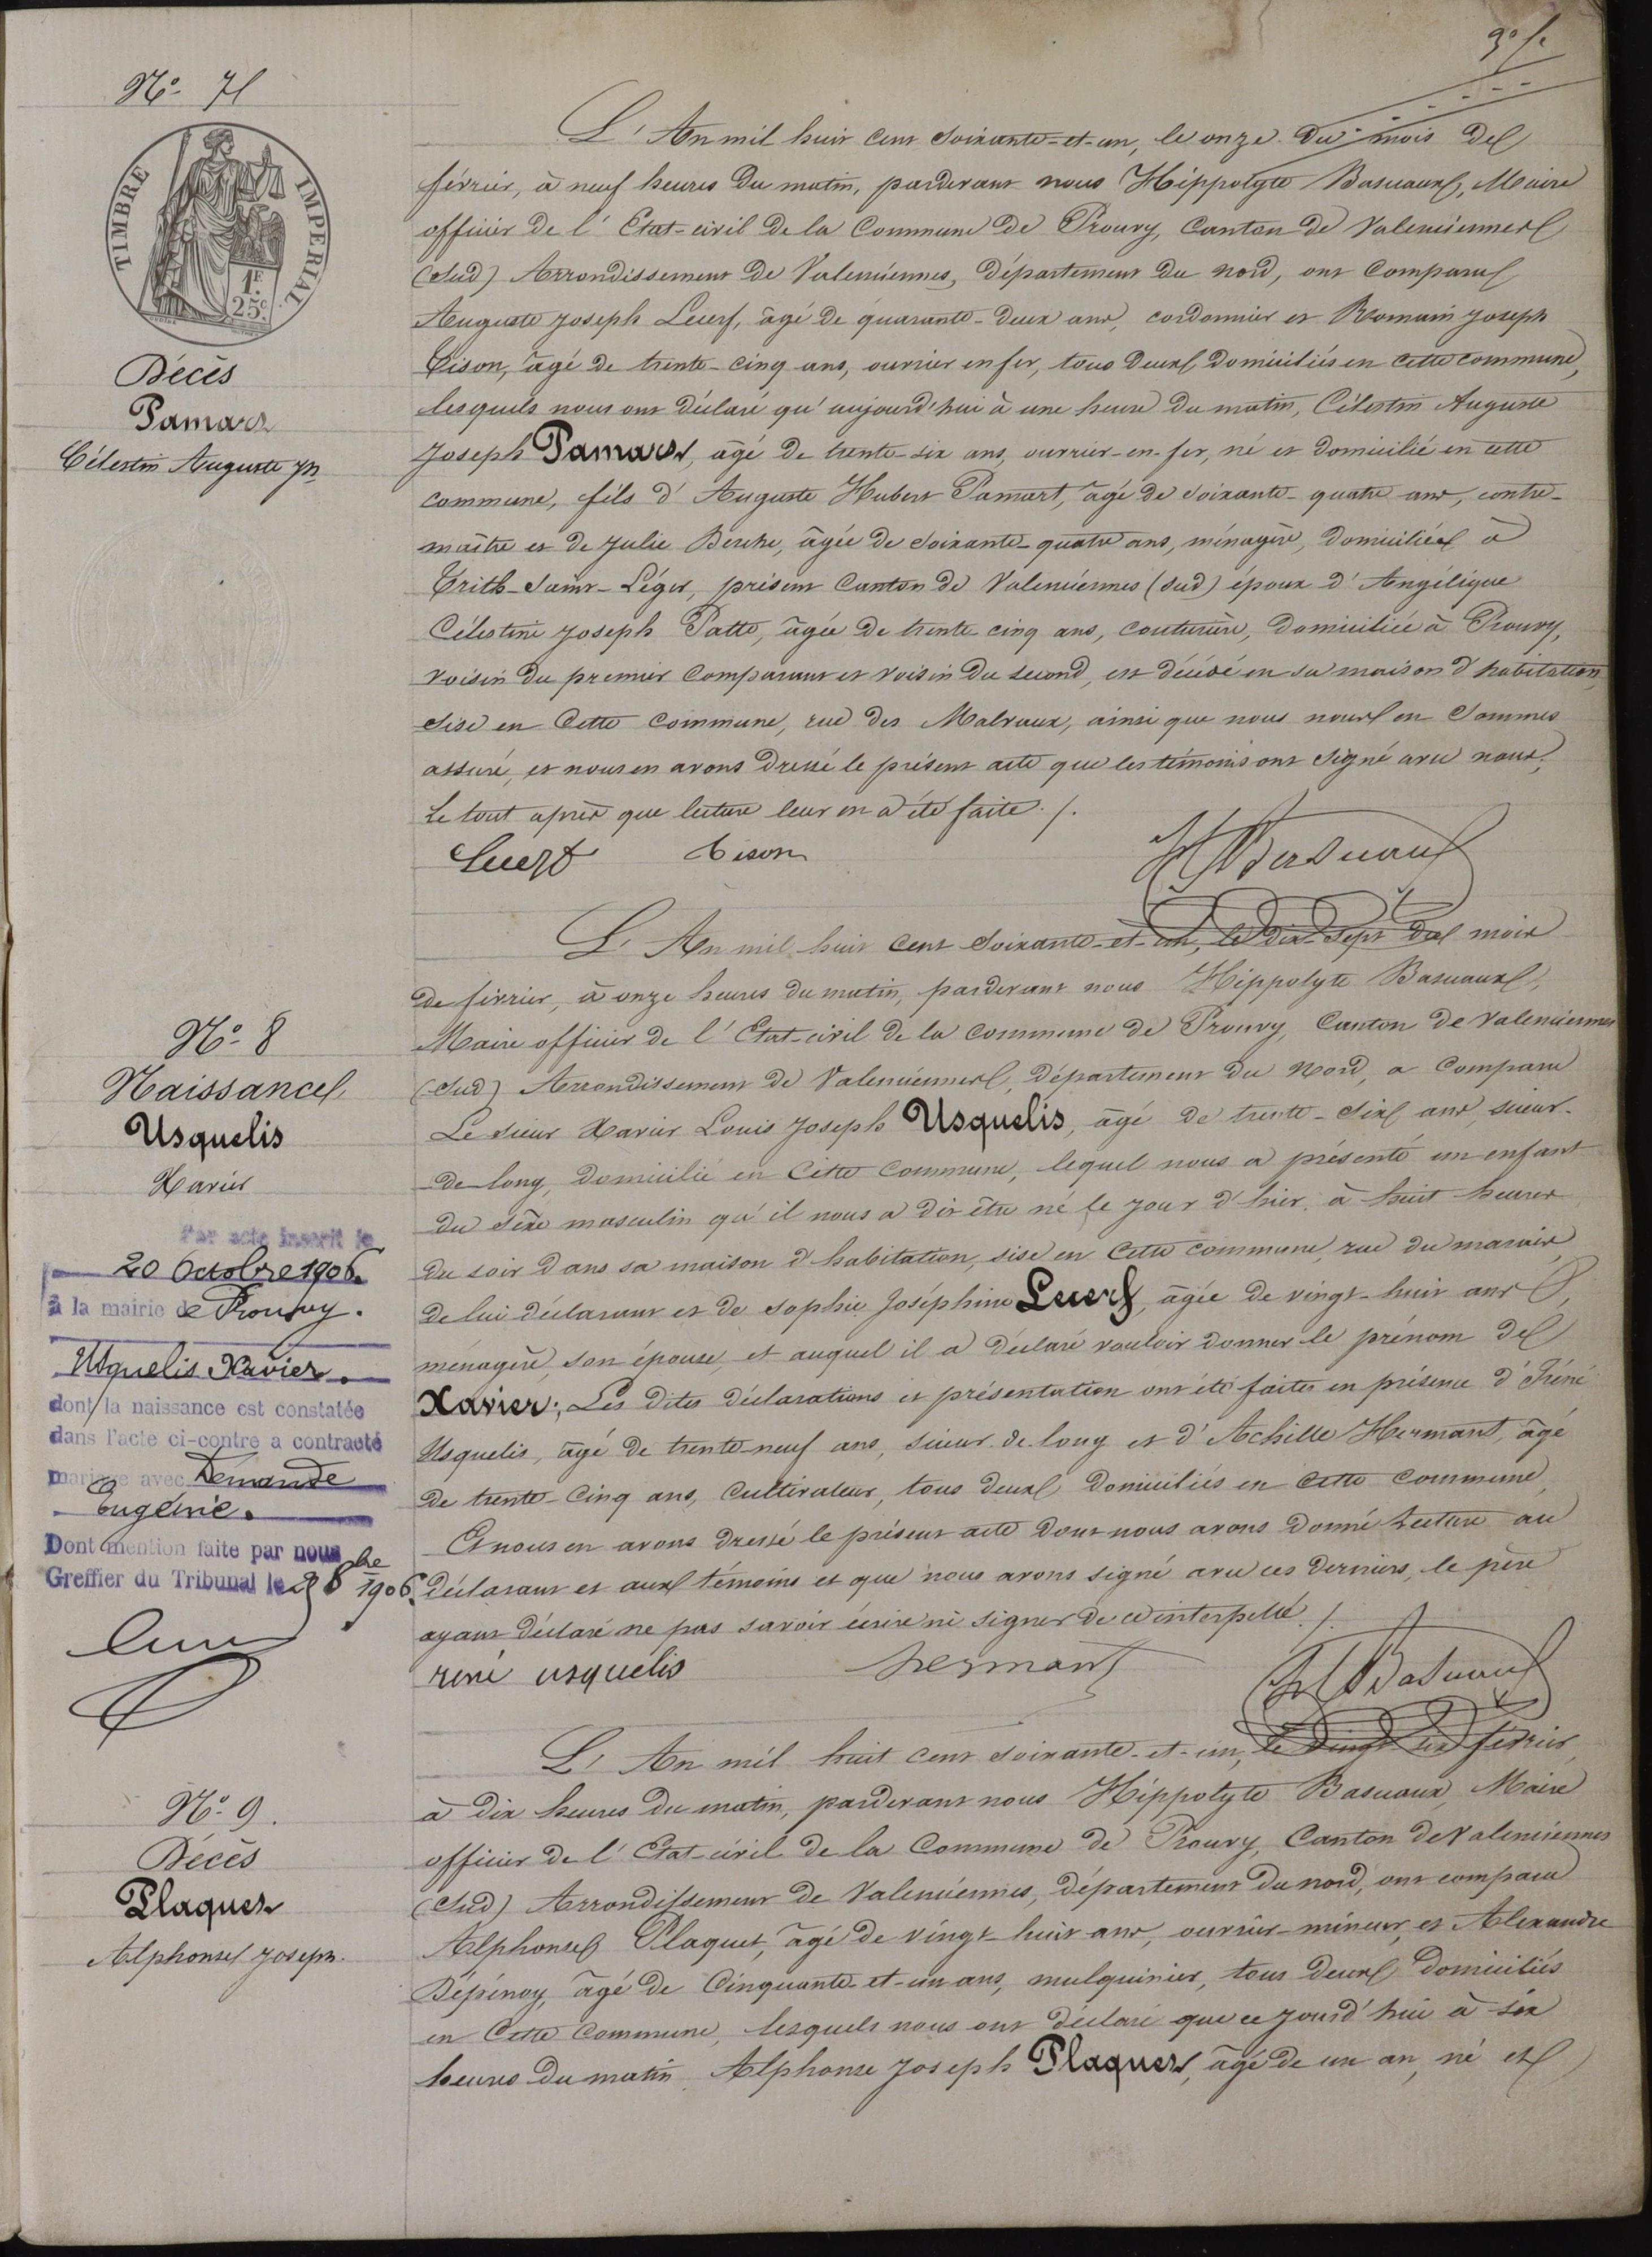 3e f.
N° 7
TIMBRE IMPERIAL
1F
25c
Décès
Pamart
Célestin Auguste Jh
L'An mil huit cent soixante-et-un, le onze du mois de
février, à neuf heures du matin, pardevant nous Hippolyte Bascaux, Maire
officier de l'Etat-civil de la Commune de Prouvy, Canton de Valenciennes
(Sud) Arrondissement de Valenciennes, département du nord, ont comparu
Auguste Joseph Lucas, âgé de quarante-deux ans, cordonnier et Romain Joseph
Tison, âgé de trente-cinq ans, ouvrier en fer, tous deux domiciliés en cette commune,
lesquels nous ont déclaré qu'aujourd'hui à une heure du matin, Célestin Auguste
Joseph Pamart, âgé de trente-six ans, ouvrier-en-fer, né et domicilié en cette
commune, fils d'Auguste Hubert Pamart, âgé de soixante-quatre ans, contre-
maître et de Julie Berche, âgée de soixante-quatre ans, ménagère, domiciliés à
Trith-Saint-Léger, présent Canton de Valenciennes (Sud) époux d'Angélique
Célestine Joseph Patte, âgée de trente cinq ans, couturière, domiciliée à Prouvy,
voisin du premier comparant et voisin du second, est décédé en sa maison d'habitation,
sise en cette commune, rue des Malvaux, ainsi que nous nous en sommes
assuré, et nous en avons dressé le présent acte que les témoins ont signé avec nous,
le tout après que lecture leur en a été faite ./.
Tison
H Bascaux
N° 8
Naissance
Usquelis
Xavier
L'An mil huit cent soixante-et-un, le dix-sept du mois
de février, à onze heures du matin, pardevant nous Hippolyte Bascaux,
Maire officier de l'Etat-civil de la commune de Prouvy, Canton de Valenciennes
(Sud) Arrondissement de Valenciennes, département du Nord, a comparu
Le sieur Xavier Louis Joseph Usquelis, âgé de trente-six ans, scieur-
de-long, domicilié en cette commune, lequel nous a présenté un enfant
du sexe masculin qu'il nous a dit être né le jour d'hier, à huit heures
du soir dans sa maison d'habitation, sise en cette commune, rue du marais,
de lui déclarant et de Sophie Joséphine Lecerf, âgée de vingt-huit ans,
ménagère, son épouse, et auquel il a déclaré vouloir donner le prénom de
Xavier; Les dites déclarations et présentation ont été faites en présence d'
Usquelis, âgé de trente-neuf ans, scieur de long et d'Achille Hermant, âgé
de trente-cinq ans, cultivateur, tous deux domiciliés en cette commune,
Et nous en avons dressé le présent acte dont nous avons donné lecture au
déclarant et aux témoins et que nous avons signé avec ces derniers, le père
ayant déclaré ne pas savoir écrire ni signer de ce interpellé ./.
rené usquelis
hermant
H Bascaux
Par acte inscrit le
20 Octobre 1906
à la mairie de Prouvy.
Usquelis Xavier.
dont la naissance est constatée
dans l'acte ci-contre a contracté
mariage avec Démande
Eugénie.
Dont mention faite par nous
Greffier du Tribunal le 8bre 1906.
N° 9.
Décès
Plaquet
Alphonse Joseph.
L'An mil huit cent soixante-et-un, le vingt six février
à dix heures du matin, pardevant nous Hippolyte Bascaux, Maire
officier de l'Etat-civil de la Commune de Prouvy, Canton de Valenciennes
(Sud) Arrondissement de Valenciennes, département du nord, ont comparu
Alphonse Plaquet, âgé de vingt-huit ans, ouvrier-mineur, et Alexandre
Dépinoy, âgé de cinquante-et-un ans, mulquinier, tous deux domiciliés
en cette commune, lesquels nous ont déclaré que ce jourd'hui à six
heures du matin, Alphonse Joseph Plaquet, âgé de un an, né et